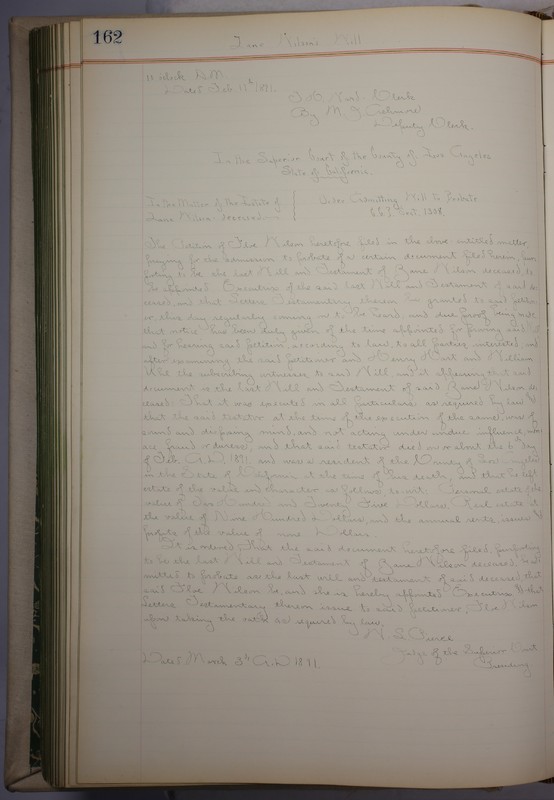 162
Wilson Will
11 o'clock A.M.
Dated Feb. 11th 1891.
Clerk
By M. J. Ashmore
Deputy Clerk.
In the Superior Court of the County of Los Angeles
State of California.
In the Matter of the Estate of
Wilson deceased
Order Admitting Will to Probate
C.C.P. Sect. 1308.
The Petition of Wilson heretofore filed in the above entitled matter
praying for the admission to Probate of a certain document filed herein, pur
porting to be the last Will and Testament of Wilson deceased, to
be appointed Executrix of the said last Will and Testament of said de
ceased, and that Letters Testamentary thereon be granted to said petitioner
on this day regularly coming on to be heard, and due proof being made
that notice has been duly given of the time appointed for proving said Will
and for hearing said petition, according to law, to all parties interested, and
after examining the said petitioner and Henry and William
the subscribing witnesses to said Will, and it appearing that said
document is the last Will and Testament of said Wilson de
ceased; That it was executed in all particulars as required by law &
that the said testator at the time of the execution of the same was of
sound and disposing mind, and not acting under undue influence men
ace, fraud or duress; and that said testator died on or about the day
of Feb. A.D. 1891 and was a resident of the County of Los Angeles
in the State of California at the time of his death, and that he left
estate of the value and character as follows, to wit: Personal estate of the
value of Hundred and Twenty Five Dollars, Real estate of
the value of Nine Hundred Dollars, and the annual rents, issues &
profits of the value of Dollars.
It is ordered, That the said document heretofore filed, purporting
to be the last Will and Testament of Wilson deceased, be ad
mitted to probate as the last will and testament of said deceased, that
said Wilson be, and she is hereby appointed Executrix & that
Letters Testamentary thereon issue to said petitioner, Wilson
upon taking the oath as required by law.
Judge of the Superior Court
Presiding
Dated March A.D. 1891.